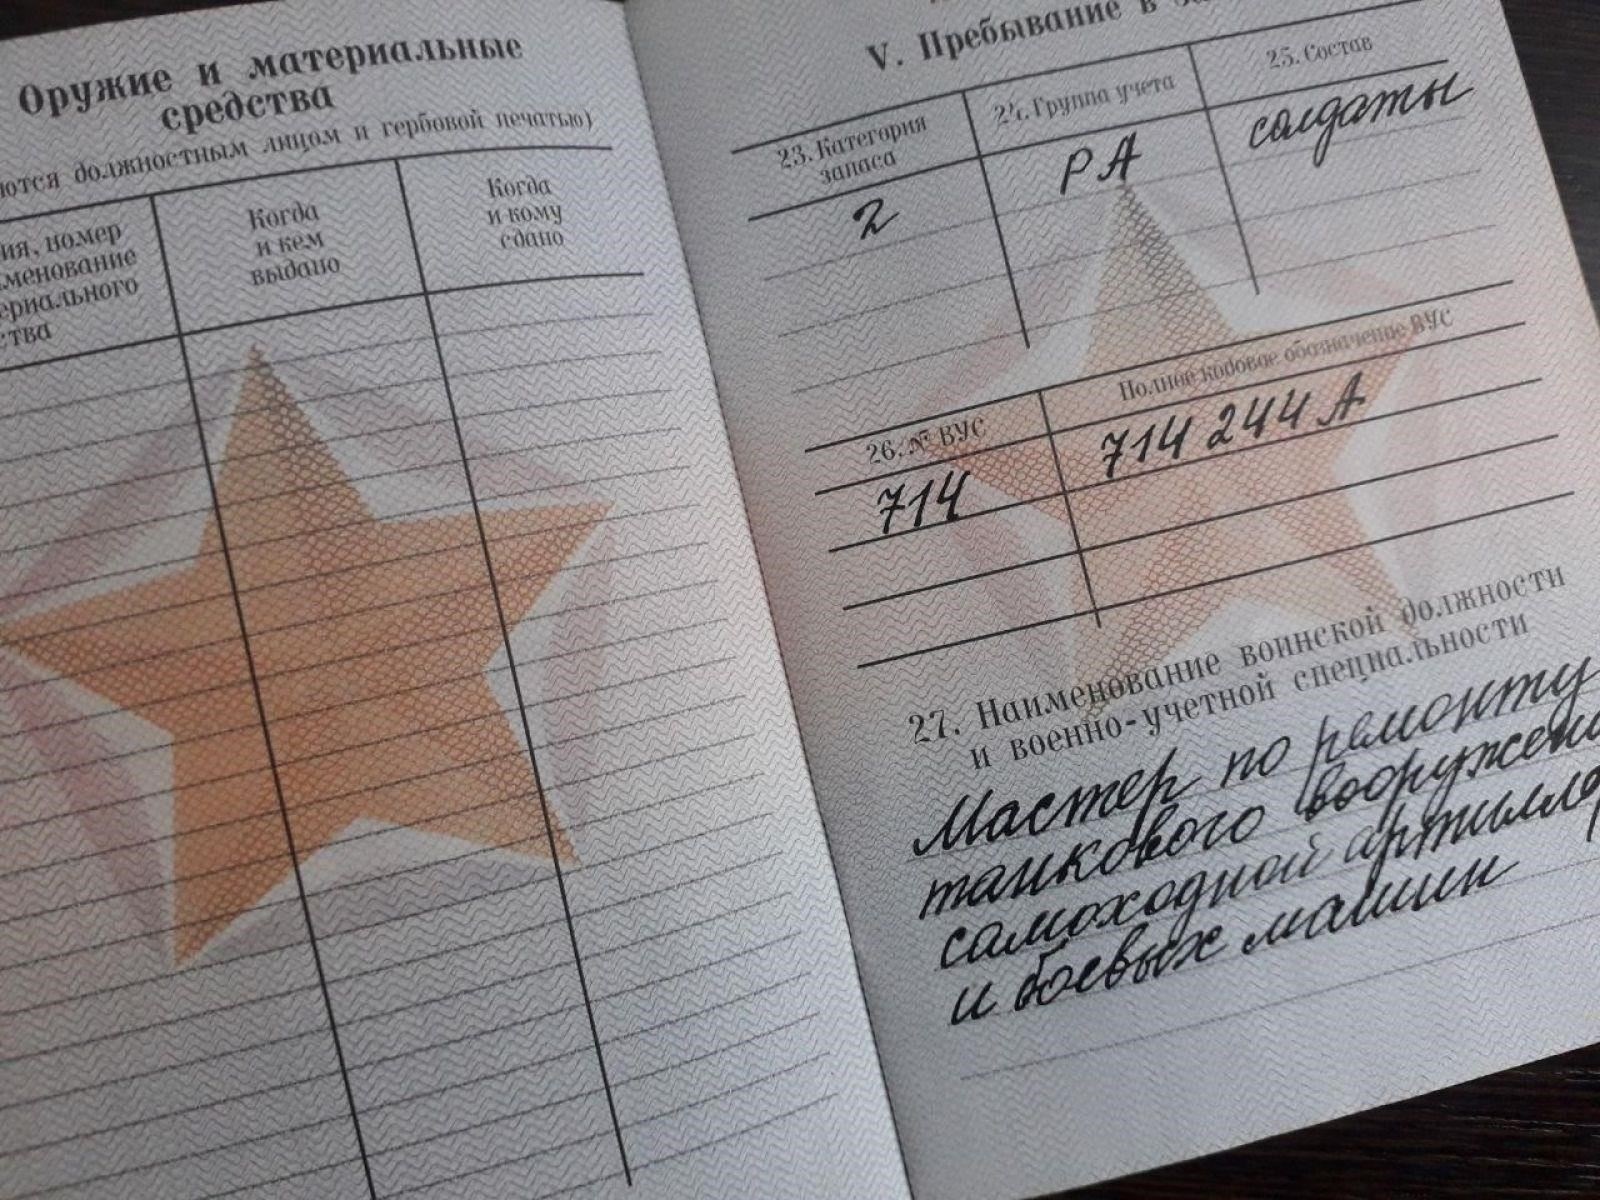 Оружие и материальные
средства
ются должностным лицом и гербовой печатью)
ия, номер
менование
ериального
ства
Когда
и кем
выдано
Когда
и кому
сдано
V. Пребывание в
23. Категория
запаса
24. Группа учета
25. Состав
2
РА
солдаты
26. № ВУС
Полное кодовое обозначение ВУС
714
714 244 А
27. Наименование воинской должности
и военно-учетной специальности
Мастер по ремонту
танкового вооружени
самоходной артилле
и боевых машин